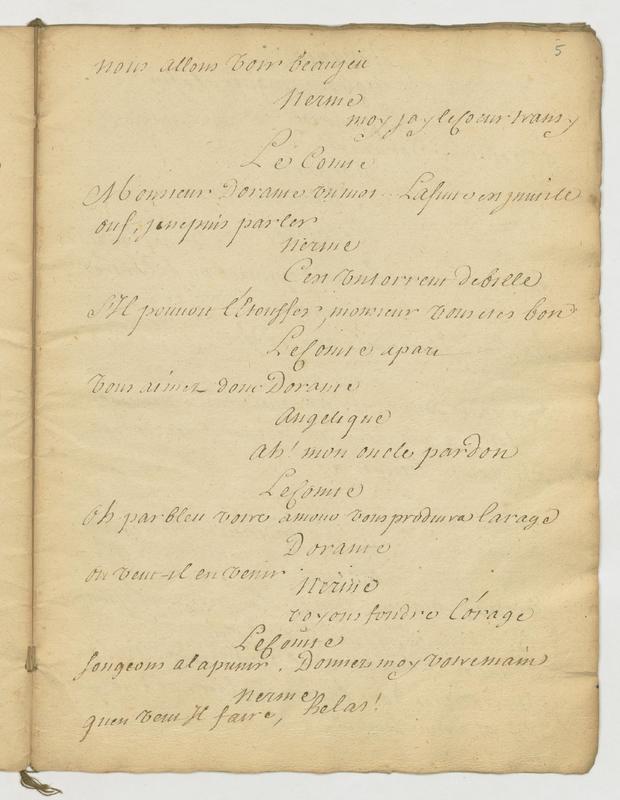 5
nous allons voir beaujeu
Nerine
moy jay le Coeur transy
Le Comte
Monsieur Dorante un mot La suivre en juin le
ouf, je ne puis parler
Nerine
C'en un torrent de bille
S'Il pouvoit l'étouffer, monsieur vous etes bon
Le Comte apart
vous aimez donc Dorante
Angelique
ah! mon oncle pardon
Le Comte
Oh parbleu votre amour vous produira la rage
Dorante
ou veut-il en venir
Nerine
voyons fondre l'órage
Le Comte
songeons a la punir. Donnez moy votre main
Nerine
quen veut Il faire, helas!